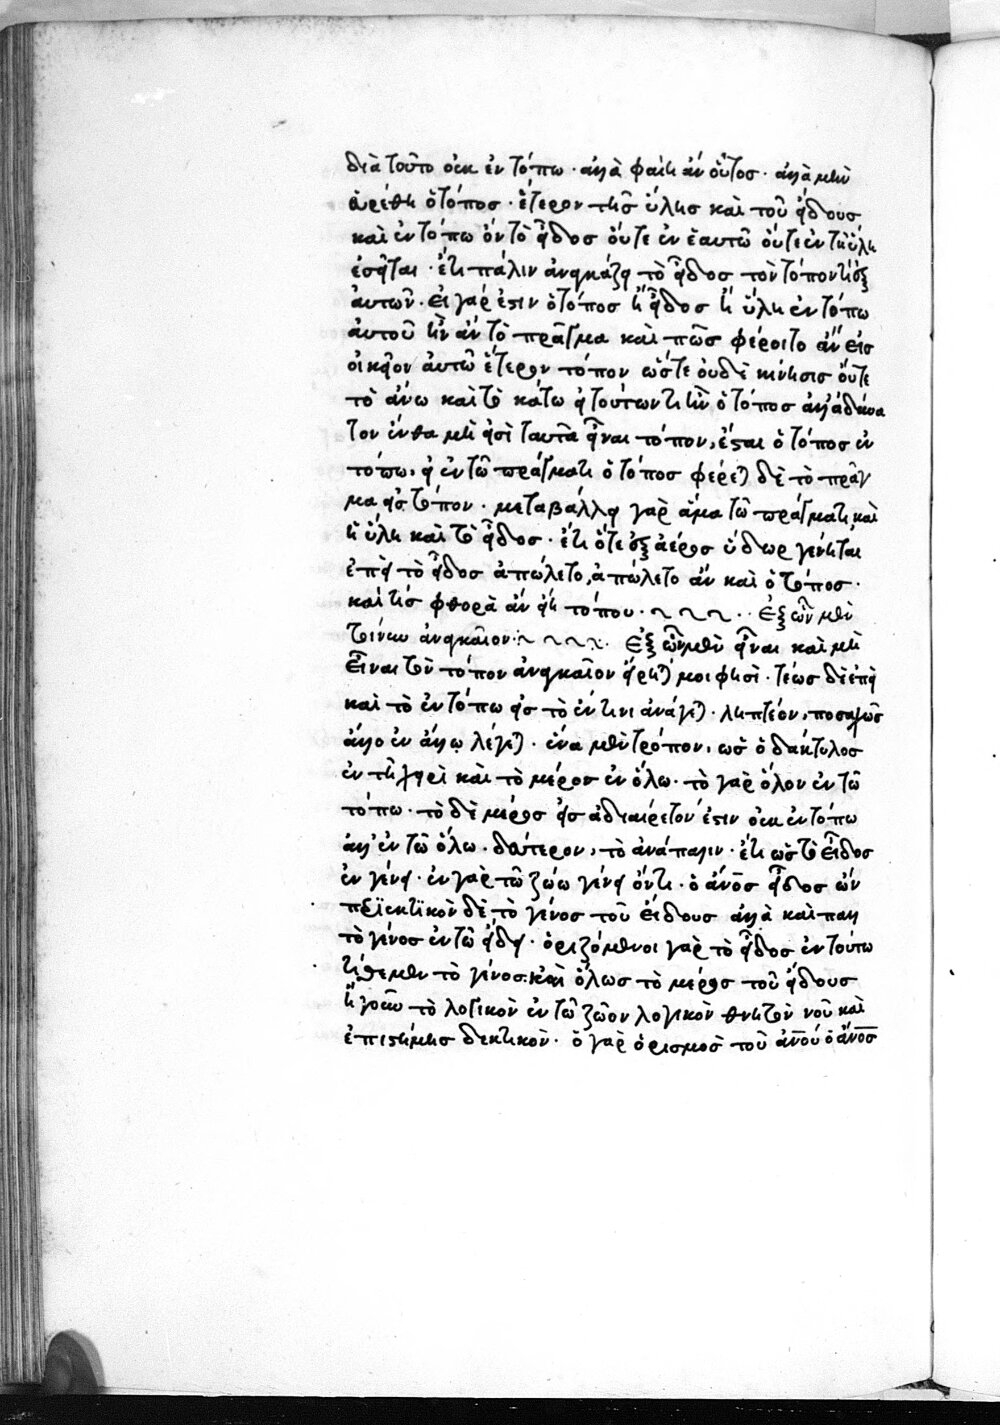 διὰ τοῦτο οὐκ ἐν τόπω · ἀλλὰ φαίη ἂν οὗτος · ἀλλὰ μὴν
εὑρέθη ὁ τόπος · ἕτερον τῆς ὕλης καὶ τοῦ εἴδους
καὶ ἐν τόπω ὂν τὸ εἶδος οὔτε ἐν ἑαυτῶ οὔτε ἐν τῆ ὕλη
ἐσεῖται · ἔτι πάλιν ἀναγκάζει τὸ εἶδος τὸν τόπον
αὐτῶν · εἰ γάρ ἐστιν ὁ τόπος ἢ εἶδος ἢ ὕλη ἐν τόπω
αὐτοῦ ἦν ἂν τὸ πρᾶγμα καὶ πῶς φέροιτο ἂν εἰς
οἰκεῖον αὐτῶ ἕτερον τόπον ὥστε οὐδὲ κίνησις οὔτε
τὸ ἄνω καὶ τὸ κάτω εἰ τούτων τι ἦν ὁ τόπος ἀλλ' ἀδύνα
τον ἔνθα μὴ εἰσὶ ταῦτα εἶναι τόπον, ἔσται ὁ τόπος ἐν
τόπω, εἰ ἐν τῶ πράγματι ὁ τόπος φέρεται δὲ τὸ πρᾶγ
μα εἰς τόπον · μεταβάλλει γὰρ ἅμα τῶ πράγματι καὶ
ἡ ὕλη καὶ τὸ εἶδος · ἔτι ὅτε ἐξ ἀέρος ὕδωρ γένηται
ἐπεὶ τὸ εἶδος ἀπώλετο, ἀπώλετο ἂν καὶ ὁ τόπος ·
καὶ τίς φθορὰ ἂν εἴη τόπου · ~ ~ ~ ~ · · Ἐξ ὧν μὲν
τοίνυν ἀναγκαῖον · ~ ~ ~ ~ · Ἐξ ὧν μὲν εἶναι καὶ μὴ
εἶναι τὸν τόπον ἀναγκαῖον εἴρηταί μοι φησὶ · τέως δὲ ἐπεὶ
καὶ τὸ ἐν τόπω εἰς τὸ ἔν τινι ἀνάγεται · ληπτέον, ποσαχῶς
ἄλλο ἐν ἄλλω λέγεται · ἕνα μὲν τρόπον, ὡς ὁ δάκτυλος
ἐν τῆ χειρὶ καὶ τὸ μέρος ἐν ὅλω · τὸ γὰρ ὅλον ἐν τῶ
τόπω · τὸ δὲ μέρος εἰς ἀδιαίρετόν ἐστιν οὐκ ἐν τόπω
ἀλλ' ἐν τῶ ὅλω · δεύτερον, τὸ ἀνάπαλιν · ἔτι ὡς τὸ εἶδος
ἐν γένει · ἐν γὰρ τῶ ζώω γένει ὄντι · ὁ ἄν̅ο̅ς εἶδος ὢν
περϊεκτϊκὸν δὲ τὸ γένος τοῦ εἴδους ἀλλὰ καὶ πάλιν
τὸ γένος ἐν τῶ εἴδει · ὁριζόμενοι γὰρ τὸ εἶδος ἐν τούτω
τίθεμεν τὸ γένος καὶ ὅλως τὸ μέρος τοῦ εἴδους
ἢ γοῦν τὸ λογικὸν ἐν τῶ ζῶον λογικὸν θνητὸν νοῦ καὶ
ἐπιστήμης δεκτικὸν · ὁ γὰρ ὁρισμὸς τοῦ ἀν̅ο̅ύ ὁ ἄν̅ο̅ς